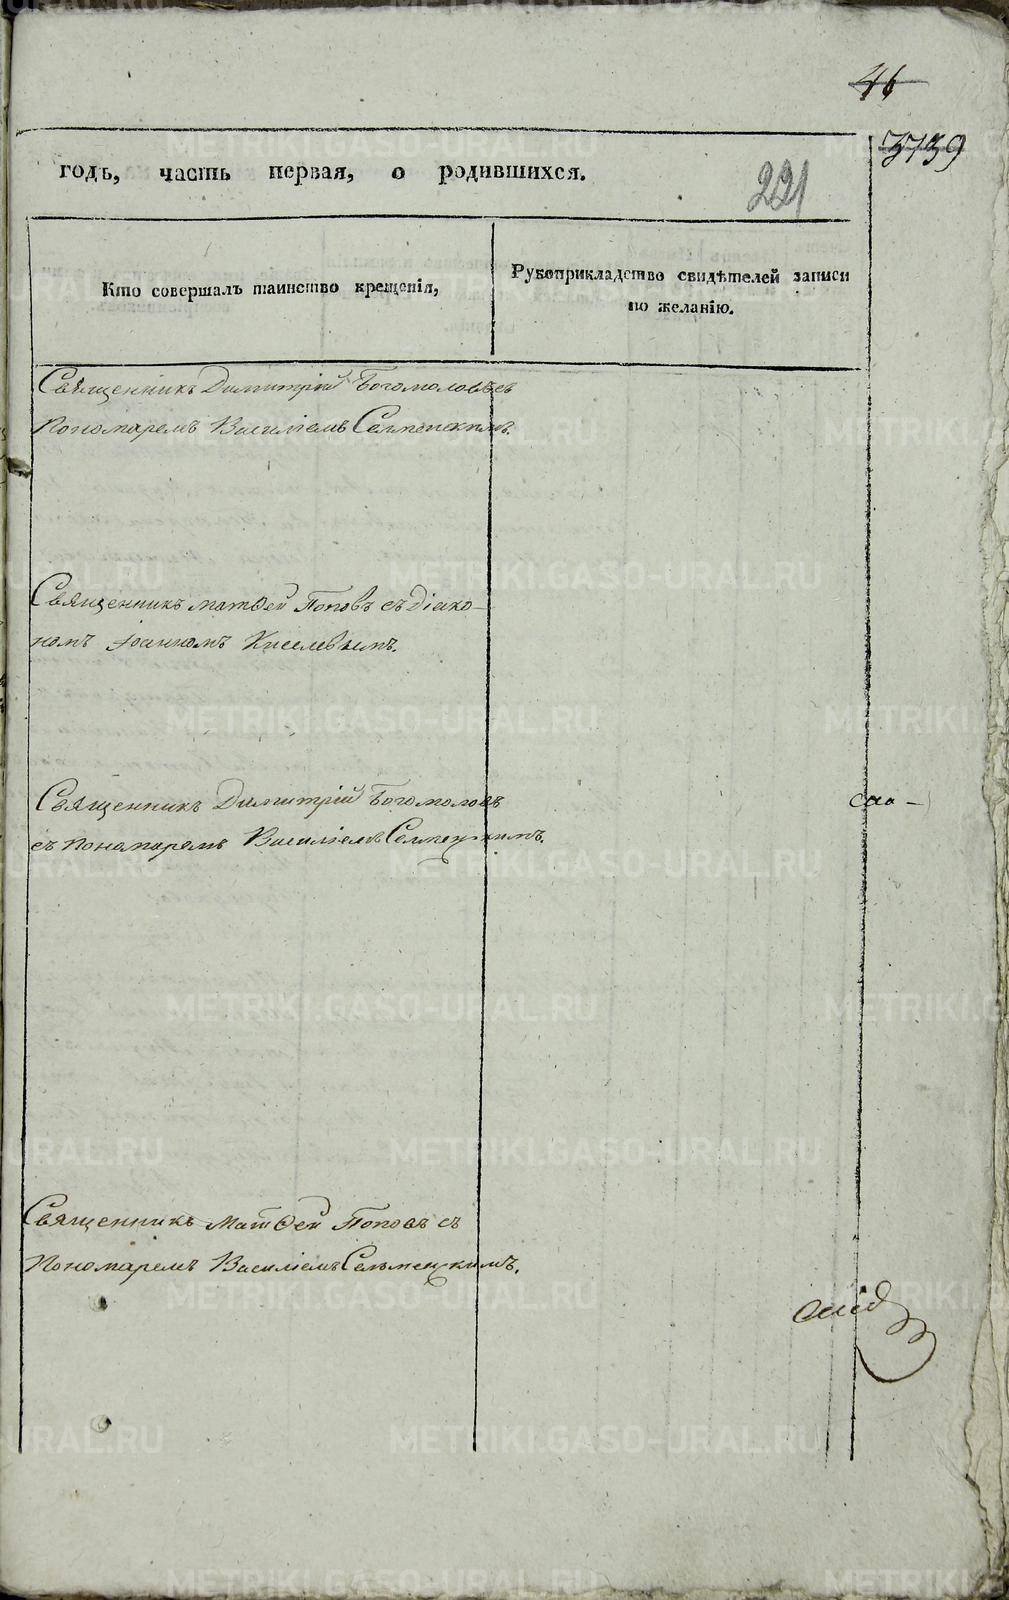 46
3739
годъ, часть первая, о родившихся.
221
Кто совершалъ таинство крещенія,
Рукоприкладство свидѣтелей записи
по желанію.
Священникъ Димитрій Богомоловъ съ
Пономаремъ Василіемъ
Священникъ Матѳей Поповъ съ Діако-
номъ Іоанномъ Киселевымъ.
Священникъ Димитрій Богомоловъ
съ Пономаремъ Василіемъ
Священникъ Матѳей Поповъ съ
Пономаремъ Василіемъ
METRIKI.GASO-URAL.RU